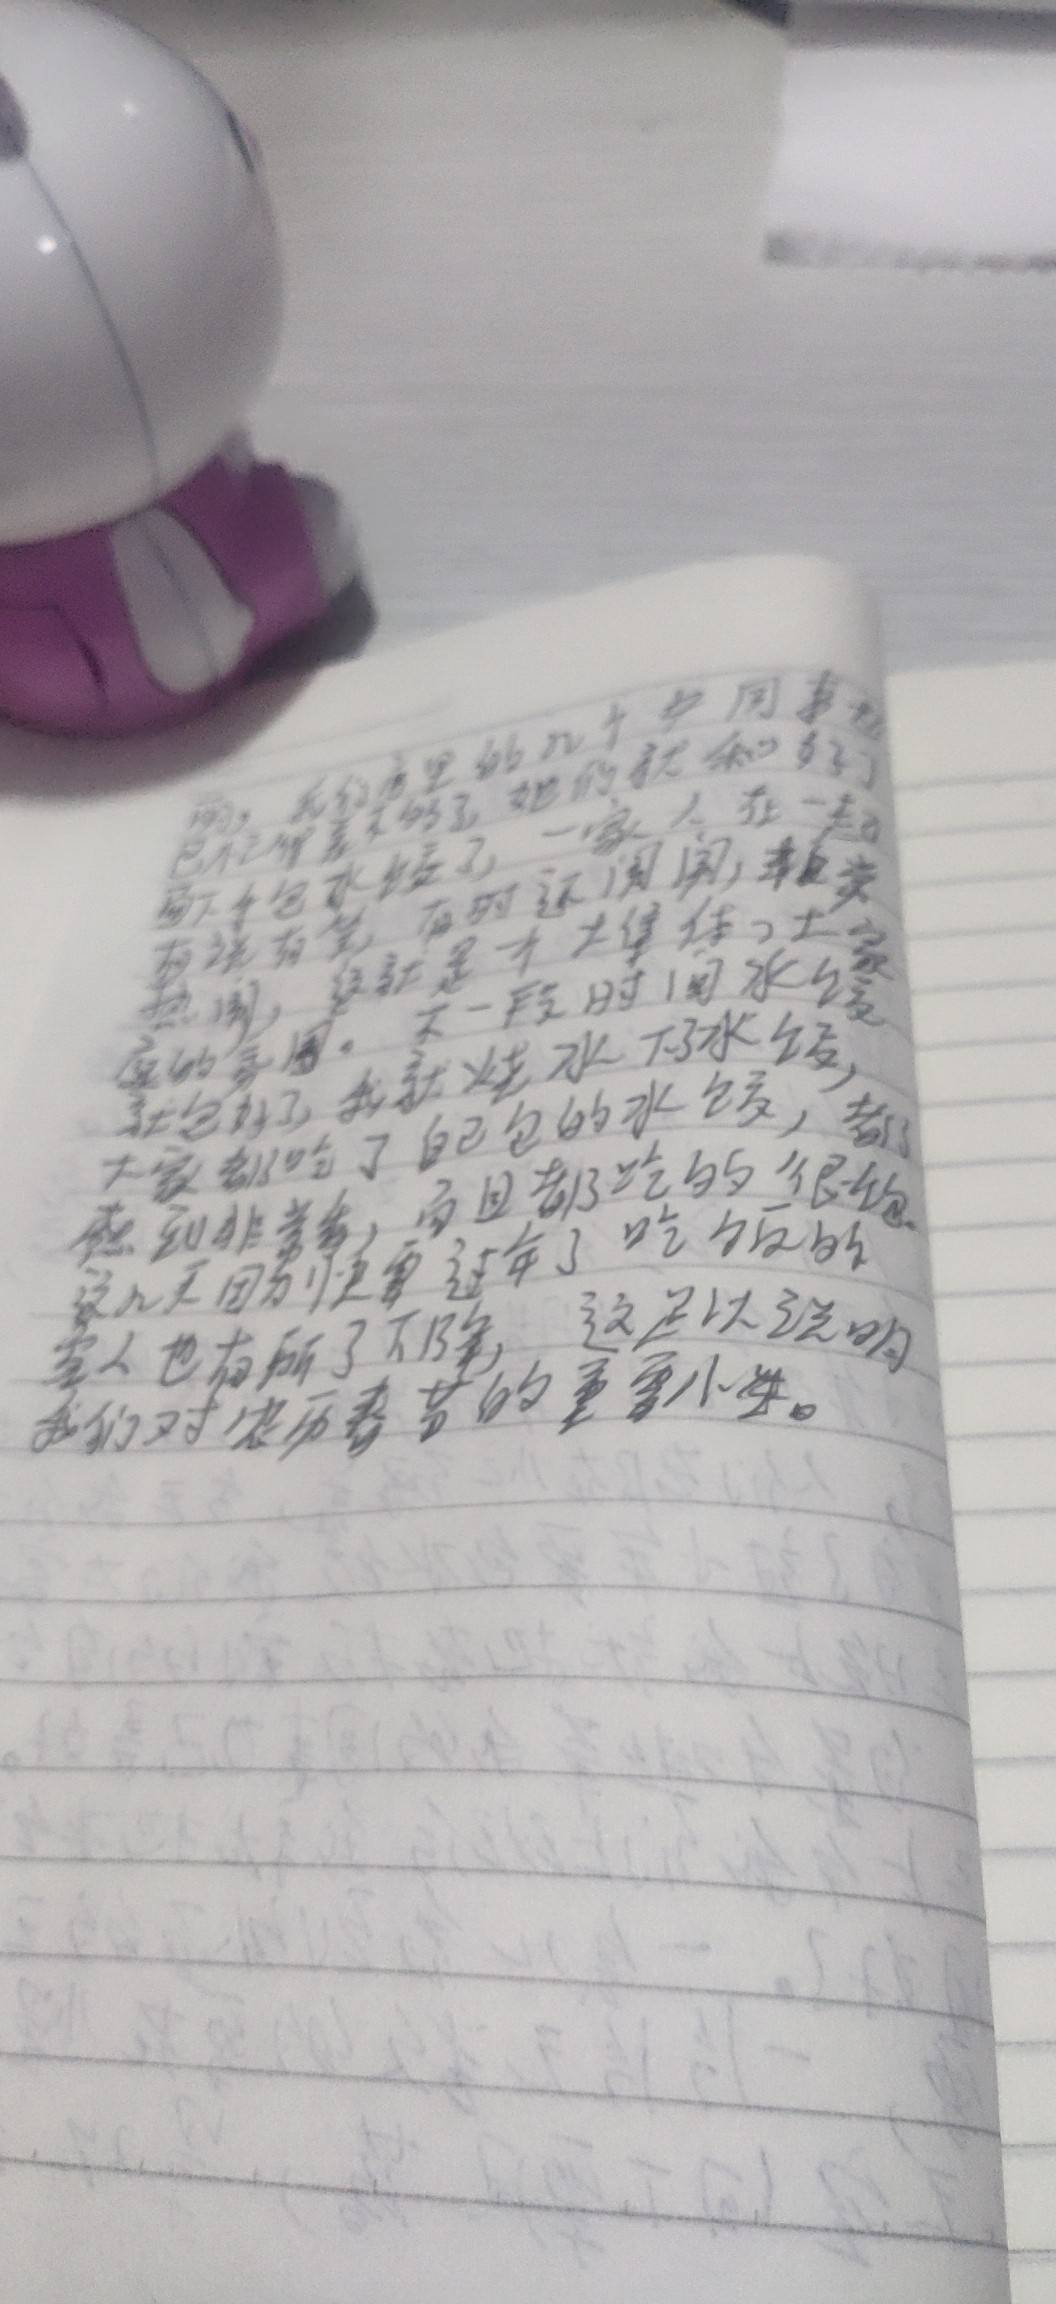 我们店里的几个女同事也
已经 差不多了 她们就和好了
面下手包水饺了, 一家人在一起
有说有笑, 有时还闹闹,
热闹, 这就是个大集体、大家
庭的氛围。不一段时间水饺
就包好了, 我就烧水下水饺,
大家都吃了自己包的水饺, 都
感到非常香, 而且都吃的很饱。
这几天因为快要过年了 吃饭的
客人也有所了下降, 这足以说明
我们对农历春节的重要小性。